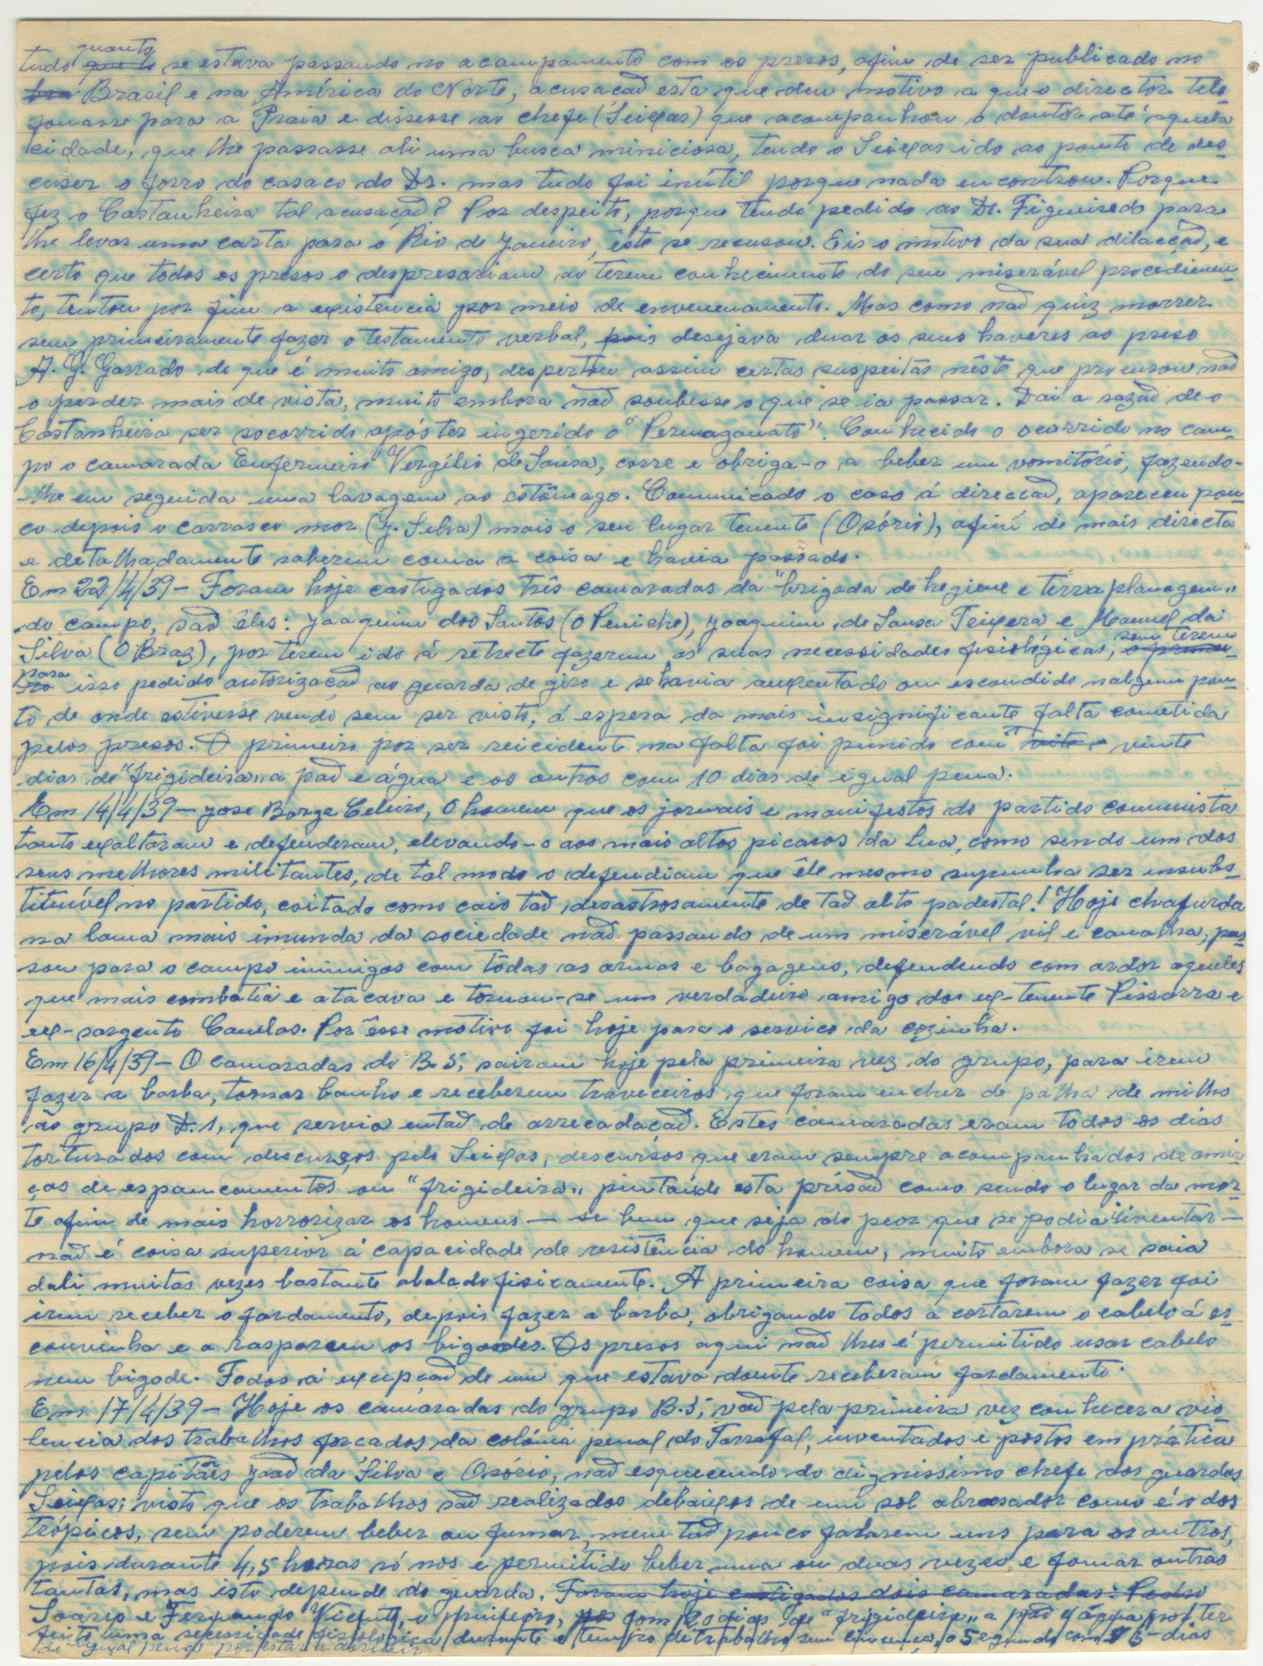 tudo quanto se estava passando no acampamento com os presos, afim de ser publicado no
Brasil e na América do Norte, acusacaõ esta que deu motivo a que o director tele
fonasse para a Praia e dissesse ao chefe (Seixas) que acompanhou o doutor até aquela
cidade, que lhe passasse ali uma busca miniciosa, tendo o Seixas ido ao ponto de des
cuser o forro do casaco do Dr. mas tudo foi inútil porque nada encontrou. Porque
fez o Castanheira tal acusaçaõ? Por despeito, porque tendo pedido ao Dr. Figueiredo para
lhe levar uma carta para o Rio de Janeiro, êste se recusou. Eis o motivo da sua dilacçaõ, e
certo que todos os presos o despresariam ao terem conhecimento do seu miserável procedimen-
to, tentou por fim a existência por meio de envenenamento. Mas como naõ quiz morrer
sem primeiramente fazer o testamento verbal, pois desejava doar os seus haveres ao preso
A. G. Garrado de que é muito amigo, despertou assim certas suspeitas nêste que procurou naõ
o perder mais de vista, muito embora naõ soubesse o que se ia passar. Dai a razaõ de o
Castanheira ser socorrido após ter ingerido o "Permaganato". Conhecido o ocorrido no cam-
po o camarada Enfermeiro Vergílio de Sousa, corre e obriga-o a beber um vomitório, fazendo-
-lhe em seguida uma lavagem ao estômago. Comunicado o caso á direcçaõ, apareceu pou-
co depois o carrasco mor (J. Silva) mais o seu lugar tenente (Osório), afim de mais directa
e detalhadamente saberem como a coisa e havia passado.
Em 22/4/39 - Foram hoje castigados três camaradas da "brigada de hegiene e terraplanagem"
do campo, saõ êles: Joaquim dos Santos (o Peniche), Joaquim de Sousa Teixera e Manuel da
Silva (O Braz), por terem ido á retrecte fazerem as suas necessidades fisiológicas, sem terem
para isso pedido autorizaçaõ ao guarda de giro e se havia auxentado ou escondido nalgum pon-
to de onde estivesse vendo sem ser visto, á espera da mais insignificante falta cometida
pelos presos. O primeiro por ser reicidente na falta foi punido com vinte
dias de "frigideira" a paõ e água e os outros com 10 dias de igual pena.
Em 14/4/39 - Jose Borge Celeiro, O homem que os jornais e manifestos do partido comunista
tanto exaltaram e defenderam, elevando-o aos mais altos picaros da lua, como sendo um dos
seus melhores militantes, de tal modo o defendiam que êle mesmo supunha ser insubs-
tituível no partido, coitado como caio taõ desastrosamente de taõ alto padestal! Hoje chafurda
na lama mais imunda da sociedade naõ passando de um miserável vil e canalha, pas
sou para o campo inimigos com tôdas as armas e bagagens, defendendo com ardor aqueles
que mais combatia e atacava e tornou-se um verdadeiro amigo dos ex-tenente Pissarra e
ex-sargento Canelas. Por êsse motivo foi hoje para o servico da cozinha.
Em 16/4/39 - O camaradas do B.5, sairam hoje pela primeira vez do grupo, para irem
fazer a barba, tomar banho e receberem traveceiros que foram encher de palha de milho
ao grupo D. 1, que servia entaõ de arrecadaçaõ. Estes camaradas eram todos os dias
torturados com descursos pelo Seixas, descursos que eram sempre acompanhados de amea
ças de espancamentos ou "frigideira" pintando esta prisaõ como sendo o lugar da mor-
te afim de mais horrorizar os homens — se bem que seja do peor que se podia inventar —
naõ é coisa superior á capacidade de resistência do homem, muito embora se saia
dali muitas vezes bastante abalado fisicamente. A primeira coisa que foram fazer foi
irem receber o fardamento, depois fazer a barba, obrigando todos a cortarem o cabelo á es-
covinha e a rasparem os bigodes. Os presos aqui naõ lhes é permitido usar cabelo
nem bigode. Todos á excepçaõ de um que estava doente receberam fardamento.
Em 17/4/39 - Hoje os camaradas do grupo B.5, vaõ pela primeira vez conhecer a vio
lencia dos trabalhos forcados da colónia penal do Tarrafal, inventados e postos em prática
pelos capitães Joaõ da Silva e Osório, naõ esquecendo do digníssimo chefe dos guardas
Seixas; visto que os trabalhos saõ realizados debaixos de um sol abrasador como é o dos
trópicos, sem poderem beber ou fumar, nem taõ pouco falarem uns para os outros,
pois durante 4,5 horas só nos e permitido beber uma ou duas vezes e fumar outras
tantas, mas isto depende do guarda. Foram hoje castigados dois camaradas: Pedro
Soares e Fernando Vicente, o primeiro, com 20 dias de "frigideira" a paõ e água por ter
feito uma necessidade fisiológica durante o tempo de trabalho sem licença, o segundo com 6 dias
de igual pena por estar a